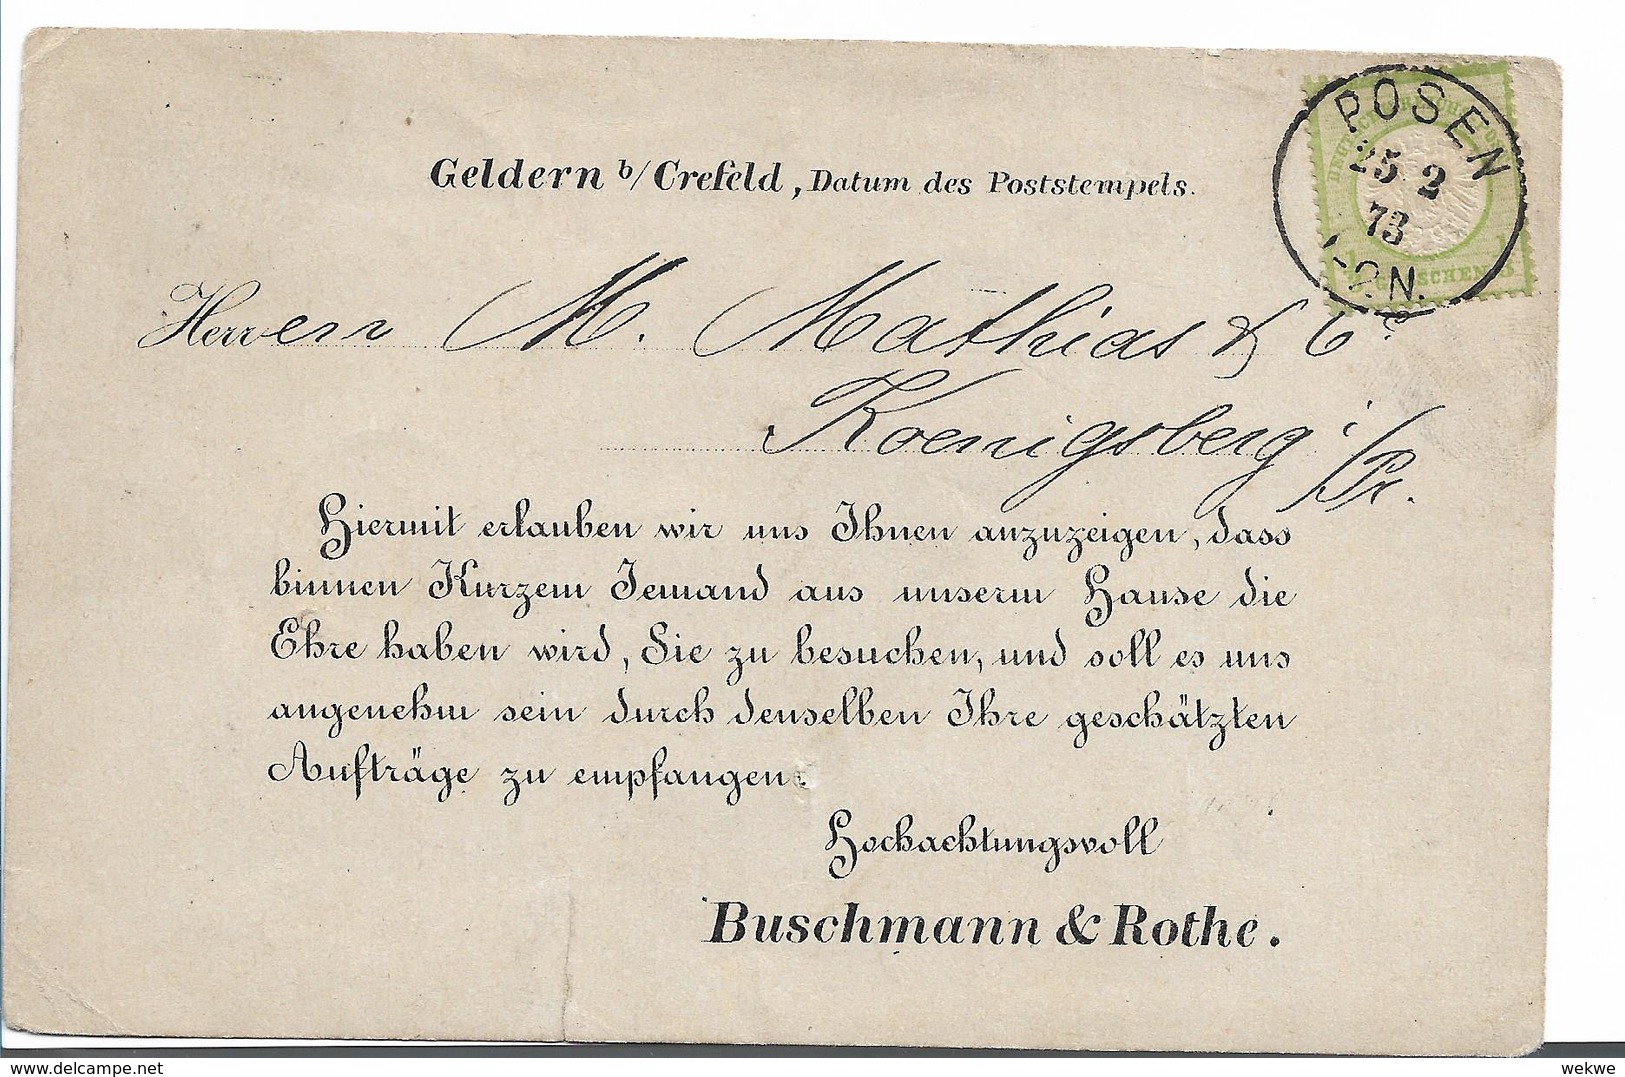 POSEN
25 2
73
N.
GROSCHEN
Geldern b/Crefeld, Datum des Poststempels.
Herren M. Mathias & Co
Koenigsberg i/Pr.
Hiermit erlauben wir uns Ihnen anzuzeigen, dass
binnen Kurzem Jemand aus unserm Hause die
Ehre haben wird, Sie zu besuchen, und soll es uns
angenehm sein durch denselben Ihre geschätzten
Aufträge zu empfangen.
Hochachtungsvoll
Buschmann & Rothe.
delcampe.net
wekwe